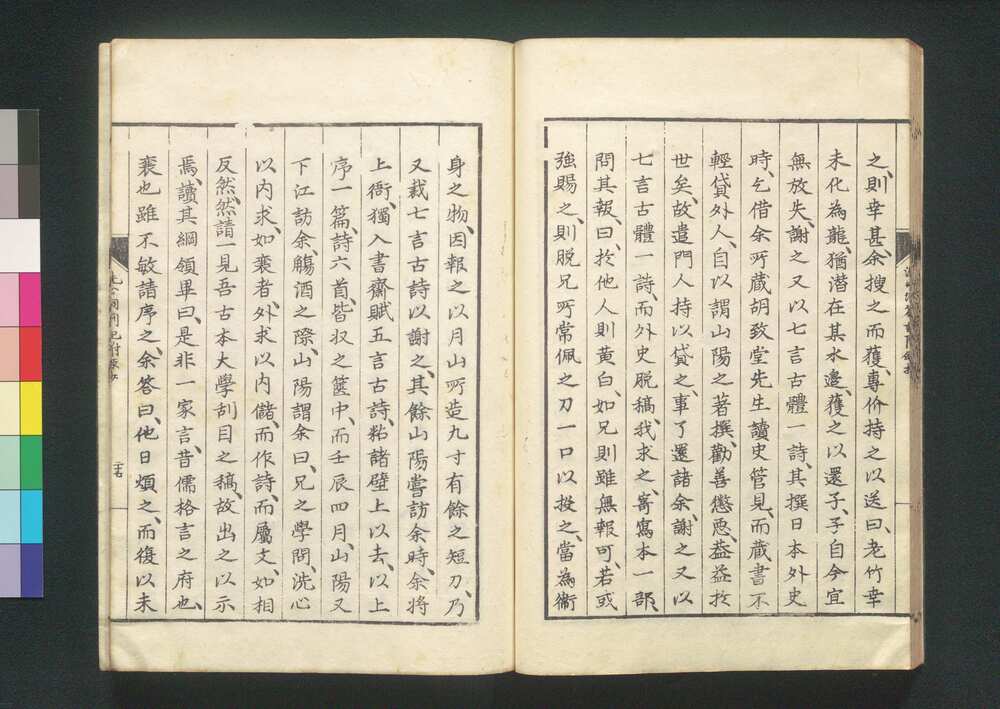 之、則幸甚、余搜之而獲、專价持之以送、曰、老竹幸
未化為龍、猶潛在其水邊、獲之以還子、子自今宜
無放失、謝之又以七言古體一詩、其撰日本外史
時、乞借余所藏胡致堂先生讀史管見、而藏書不
輕貸外人、自以謂山陽之著撰、勸善懲惡、益益於
世矣、故遣門人持以貸之、事了還諸余、謝之又以
七言古體一詩、而外史脫稿、我求之、寄寫本一部、
問其報、曰、於他人則黃白、如兄則雖無報可、若或
強賜之、則脫兄所常佩之刀一口以投之、當為衞
身之物、因報之以月山所造九寸有餘之短刀、乃
又裁七言古詩以謝之、其餘山陽嘗訪余時、余將
上衙、獨入書齋賦五言古詩、粘諸壁上以去、以上
序一篇、詩六首、皆收之篋中、而壬辰四月、山陽又
下江訪余、觴酒之際、山陽謂余曰、兄之學問、洗心
以內求、如襄者、外求以內儲、而作詩、而屬文、如相
反然、然請一見吾古本大學刮目之稿、故出之以示
焉、讀其綱領畢曰、是非一家言、昔儒格言之府也、
襄也雖不敏請序之、余答曰、他日煩之、而復以未
二十七